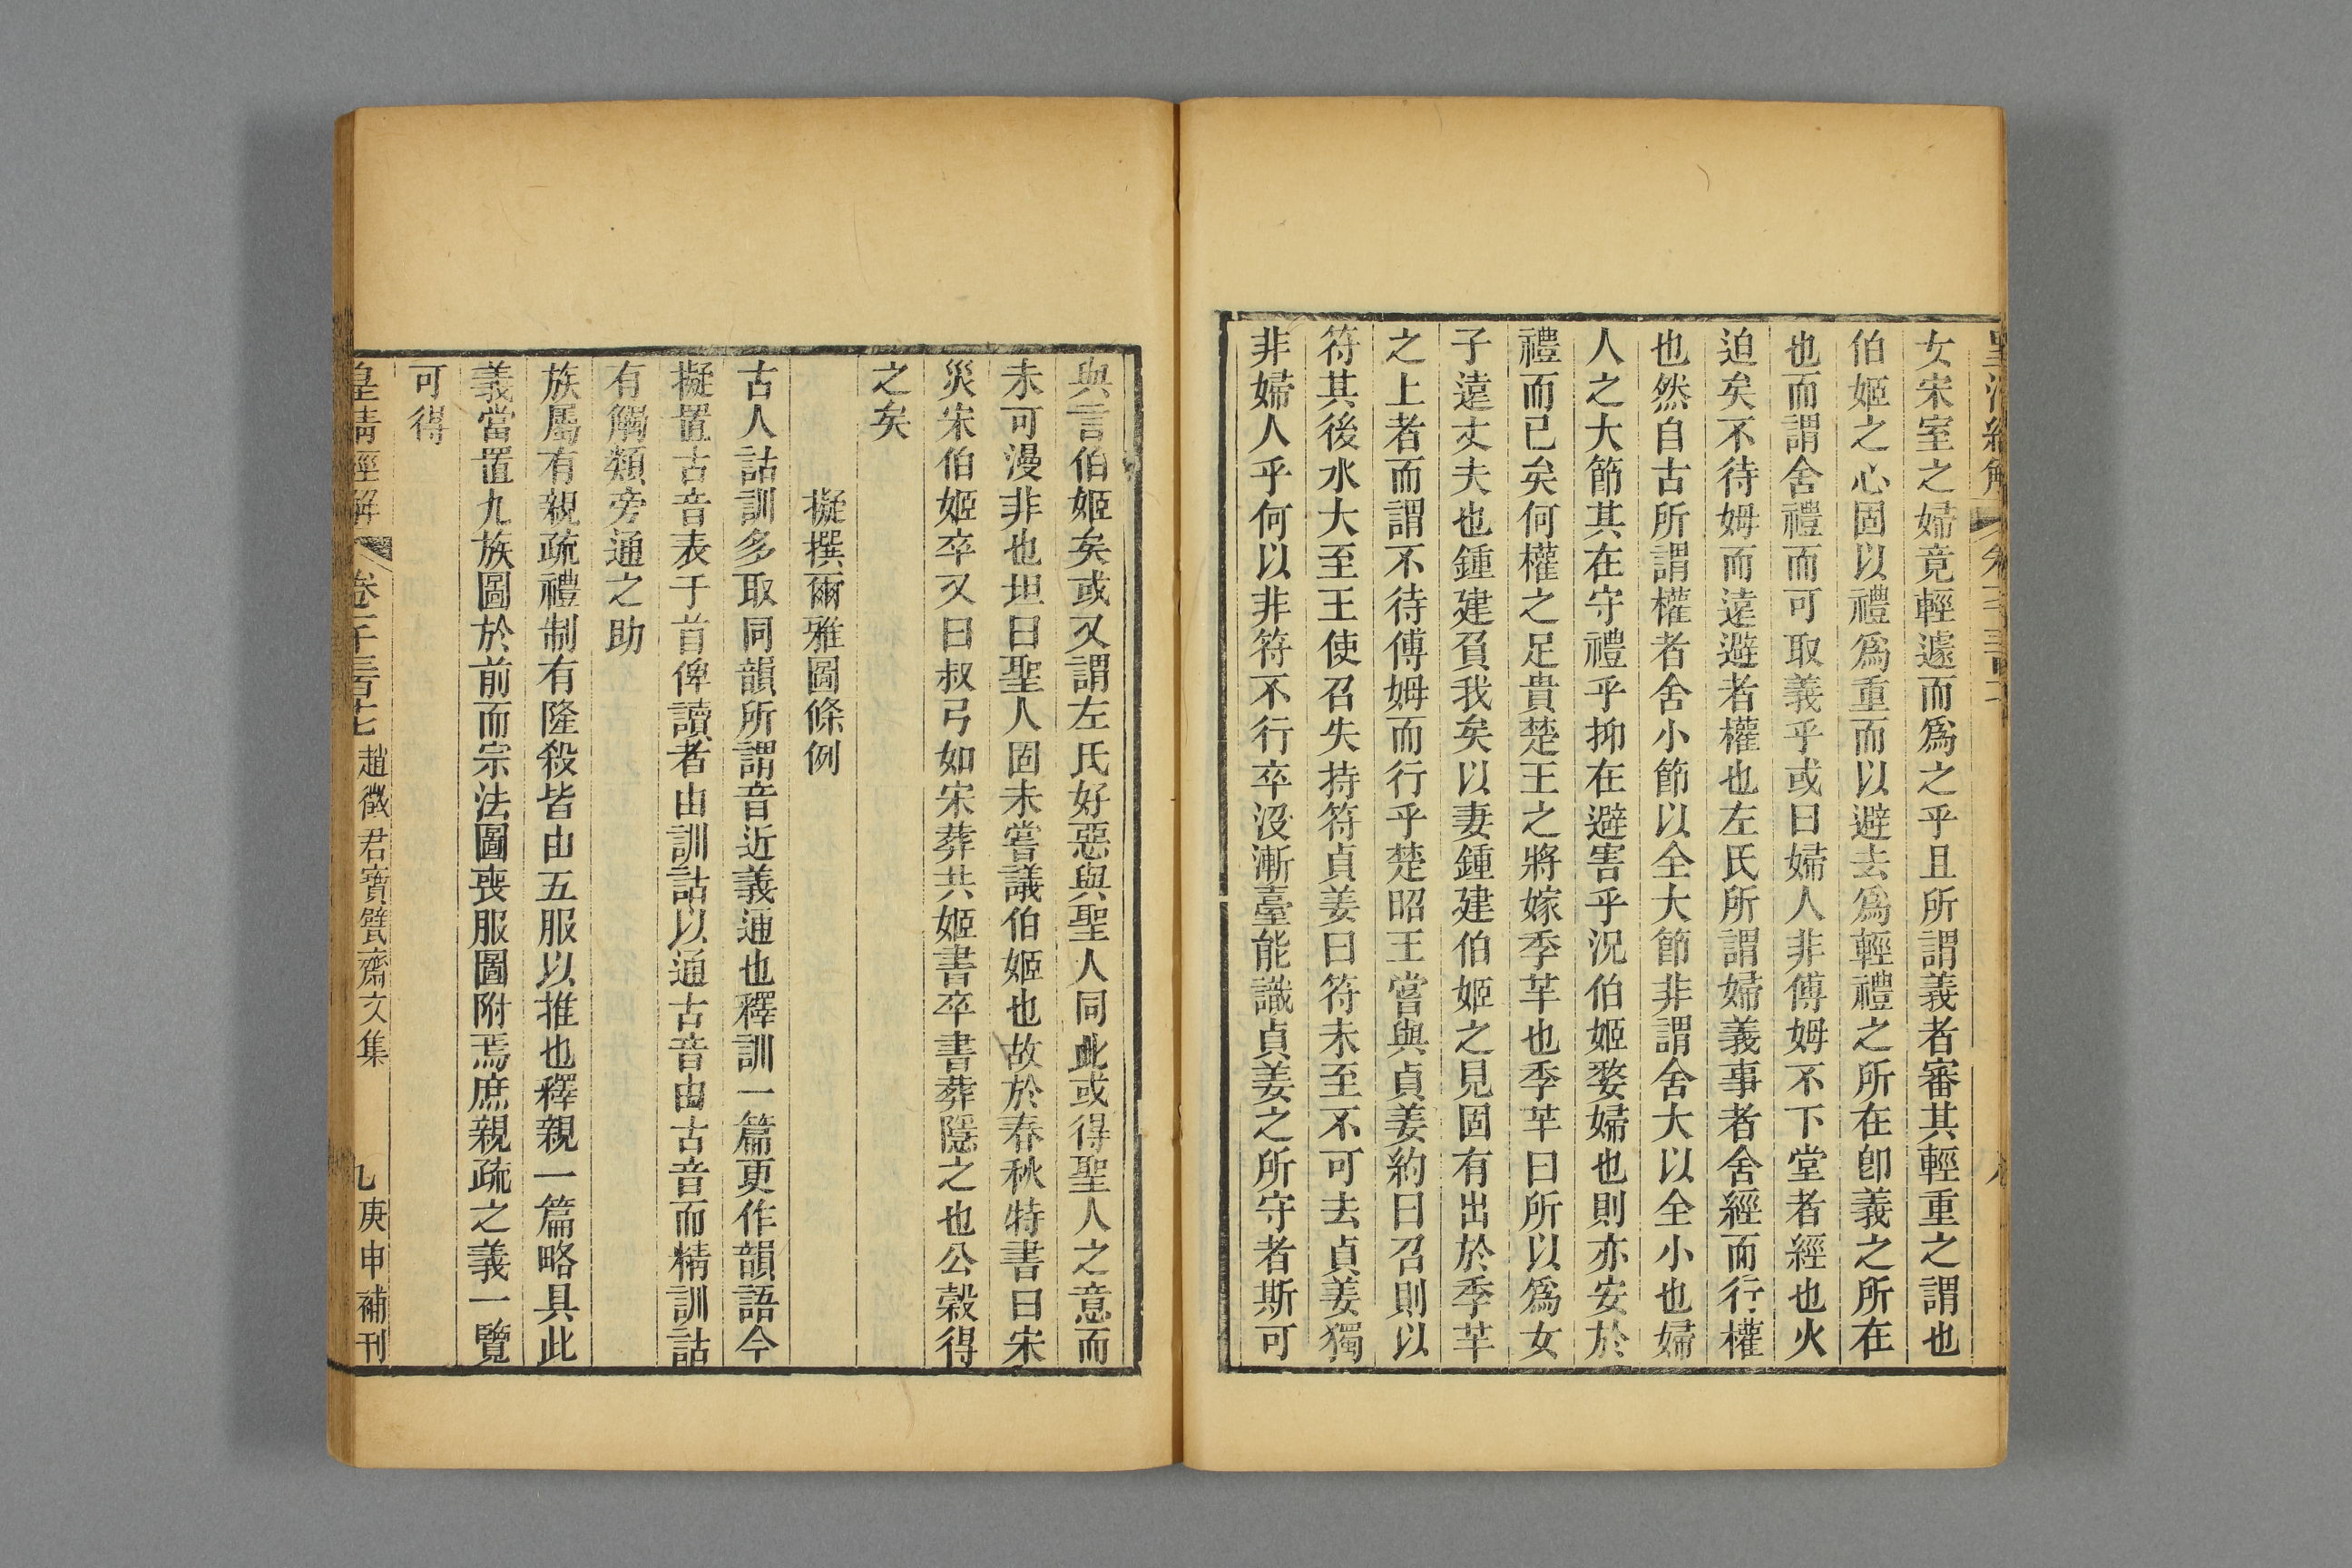 女宋室之婦竟輕遽而爲之乎且所謂義者審其輕重之謂也
伯姬之心固以禮爲重而以避去爲輕禮之所在卽義之所在
也而謂舍禮而可取義乎或曰婦人非傅姆不下堂者經也火
迫矣不待姆而遠避者權也左氏所謂婦義事者舍經而行權
也然自古所謂權者舍小節以全大節非謂舍大以全小也婦
人之大節其在守禮乎抑在避害乎況伯姬婺婦也則亦安於
禮而已矣何權之足貴楚王之將嫁季芊也季芊曰所以爲女
子遠丈夫也鍾建負我矣以妻鍾建伯姬之見固有出於季芊
之上者而謂不待傅姆而行乎楚昭王嘗與貞姜約曰召則以
符其後水大至王使召失持符貞姜曰符未至不可去貞姜獨
非婦人乎何以非符不行卒沒漸臺能識貞姜之所守者斯可
與言伯姬矣或又謂左氏好惡與聖人同此或得聖人之意而
未可漫非也坦曰聖人固未嘗議伯姬也故於春秋特書曰宋
災宋伯姬卒又曰叔弓如宋葬共姬書卒書葬隱之也公穀得
之矣
擬撰爾雅圖條例
古人詁訓多取同韻所謂音近義通也釋訓一篇更作韻語今
擬置古音表于首俾讀者由訓詁以通古音由古音而精訓詁
有觸類旁通之助
族屬有親疏禮制有隆殺皆由五服以推也釋親一篇略具此
義當置九族圖於前而宗法圖喪服圖附焉庶親疏之義一覽
可得
皇清經解 卷一千三百十七 趙徵君寶甓齋文集 九 庚申補刊